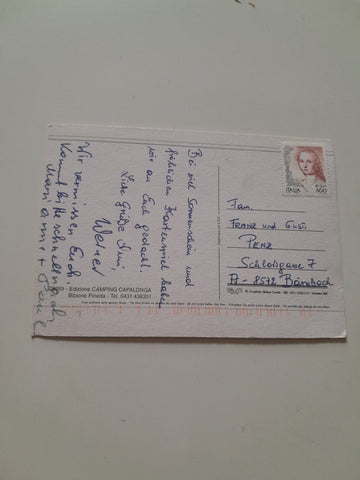 Bei viel Sonnenschein und
fröhlichen Kartenspiel haben
wir an Euch gedacht.
Liebe Grüße
Werner
Wir vermissen Euch!
Kommt bitte schnell nach
ITALIA
800
Fam.
FRANZ und Gusti
PENZ
Schloßgasse 7
A-8572 Bärnbach
Edizione CAMPING CAPALONGA
Bibione Pineda - Tel. 0431 438351